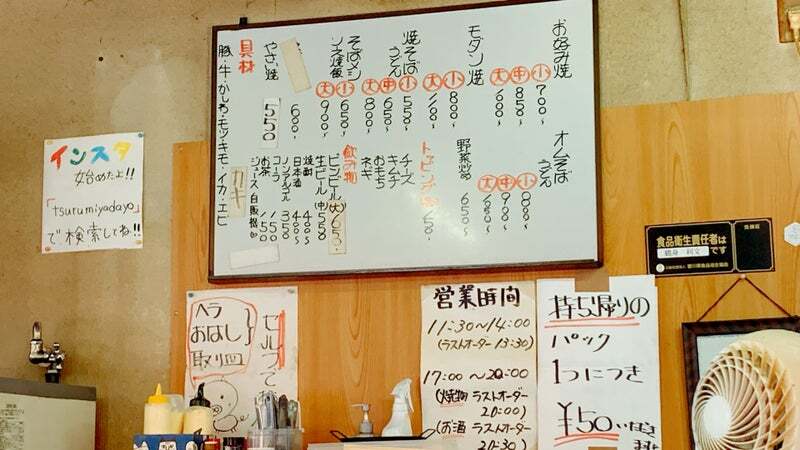 お好み焼
小 700~
中 850~
大
モダン焼
小 800~
大
焼そば
うどん
小 550~
中 650~
大 800~
そばメシ
ソース焼飯
小 650~
大 900~
600~
やさい焼
550
具材
豚・牛・かしわ・モツ・キモ・イカ・エビ
カキ
オムそば
うどん
小 800~
中 900~
大
野菜炒
650~
トッピング
チーズ
キムチ
おもち
ネギ
飲み物
ビンビール(大) 650
生ビール(中) 550
焼酎 400~
日本酒 400~
ノンアルコール 350
コーラ 150
お茶 150
ジュース自販機
インスタ
始めたよ!!
「tsurumiyadayo」
で検索してね!!
セルフで
ヘラ
おはし
取り皿
営業時間
11:30~14:00
(ラストオーダー 13:30)
17:00~20:00
(焼物 ラストオーダー
20:00)
(お酒 ラストオーダー
20:30)
持ち帰りの
パック
1つにつき
¥50
食品衛生責任者は
です